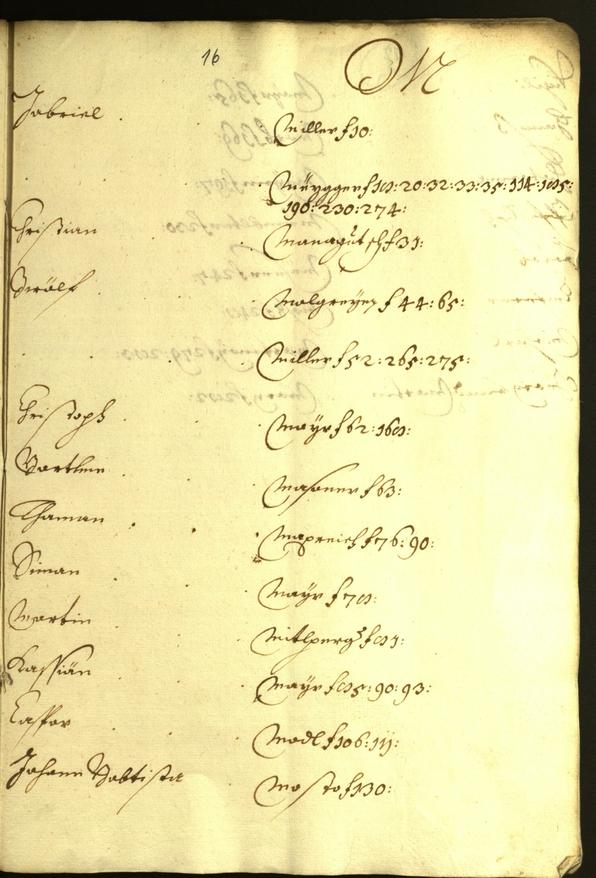 16
M
Gabriel
Miller f 10:
Mürgger f 18: 20: 32: 33: 35: 114: 185:
196: 230: 274:
Christian
Managutsch f 31:
Wölf
Malgreyer f 44: 65:
Miller f 52: 265: 275:
Christoph
Mayr f 62: 168:
Bartlme
Masoner f 63:
Thaman
Mapreich f 76: 90:
Siman
Mayr f 78:
Martin
Mitlperg f 81:
Kassiän
Mayr f 85: 90: 93:
Caspar
Madl f 106: 111:
Johann Babtista
Mosto f 130: